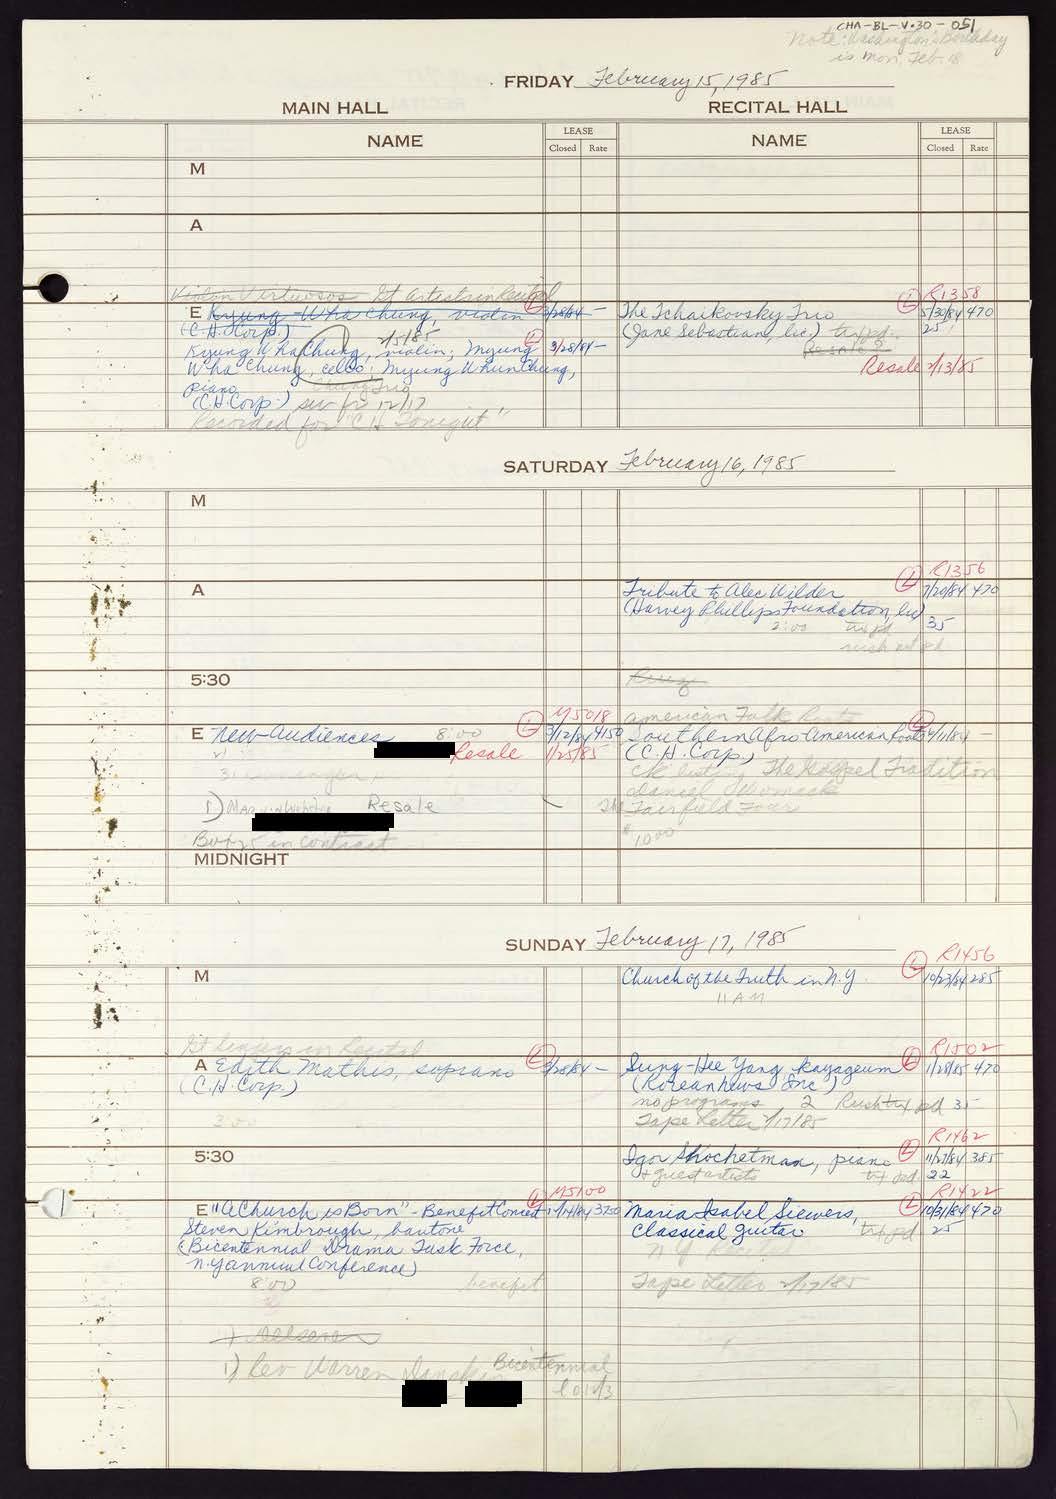 CHA-BL-V.30-051
Note: Washington's Birthday
is Mon, Feb. 18
FRIDAY February 15, 1985
MAIN HALL
RECITAL HALL
NAME
LEASE
Closed Rate
NAME
LEASE
Closed Rate
M
A
Violin Virtuosos Gt Artists in Recital
E Kyung-Wha Chung, violin
(C.H. Corp.)
2/5/85
Kyung Wha Chung, violin; Myung 3/28/84 —
Wha Chung, cello; Myung Whun Chung,
piano Chung Trio
(C.H. Corp.) 12/17
Recorded for "C H Tonight"
R1358
The Tchaikovsky Trio L 5/30/84 470
(Jane Sebastian, Inc.) 25
Resale 2/13/85
SATURDAY February 16, 1985
M
A
R1356
Tribute to Alec Wilder L 7/20/84 470
(Harvey Phillips Foundation, Inc) 35
2:00
5:30
E New Audiences 8:00 L M5018
3/12/84 4150
Resale 1/25/85
1) Resale
Box 25 in contract
American Folk Roots
Southern Afro American Roots L —
(C.H. Corp.)
ck listing The Gospel Tradition
Daniel Womack
The Fairfield Four
$10.00
MIDNIGHT
SUNDAY February 17, 1985
M
R1456
Church of the Truth in N.Y. L 10/23/84 285
11 AM
Gt Singers in Recital
A Edith Mathis, soprano L 3/28/84 —
(C.H. Corp.)
3:00
R1502
Sung-Hee Yang, kayageum L 1/28/85 470
(Koreanews Inc)
no programs 2 Rush txt pd 35
Tape Letter 2/17/85
5:30
R1462
Igor Shochetman, piano L 11/27/84 385
+ guest artists txt pd. 22
M5100
E "A Church is Born" - Benefit Concert L
Steven Kimbrough, baritone
(Bicentennial Drama Task Force,
N.Y. Annual Conference)
8:00 benefit
R1422
Maria Isabel Siewers, L 10/31/84 470
Classical guitar txt pd. 25
NY Recital
Tape Letter 2/17/85
1) Rev Warren Bicentennial